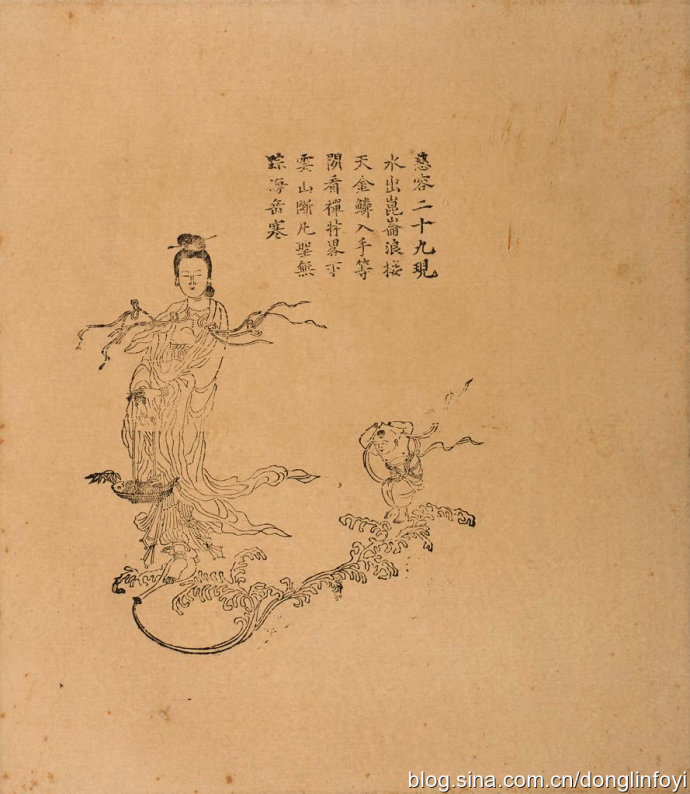 慈容二十九現
水出崑崙浪接
天金鱗入手等
閒看禪特畧不
雲山斷凡聖無
踪海岳寒
blog.sina.com.cn/donglinfoyi